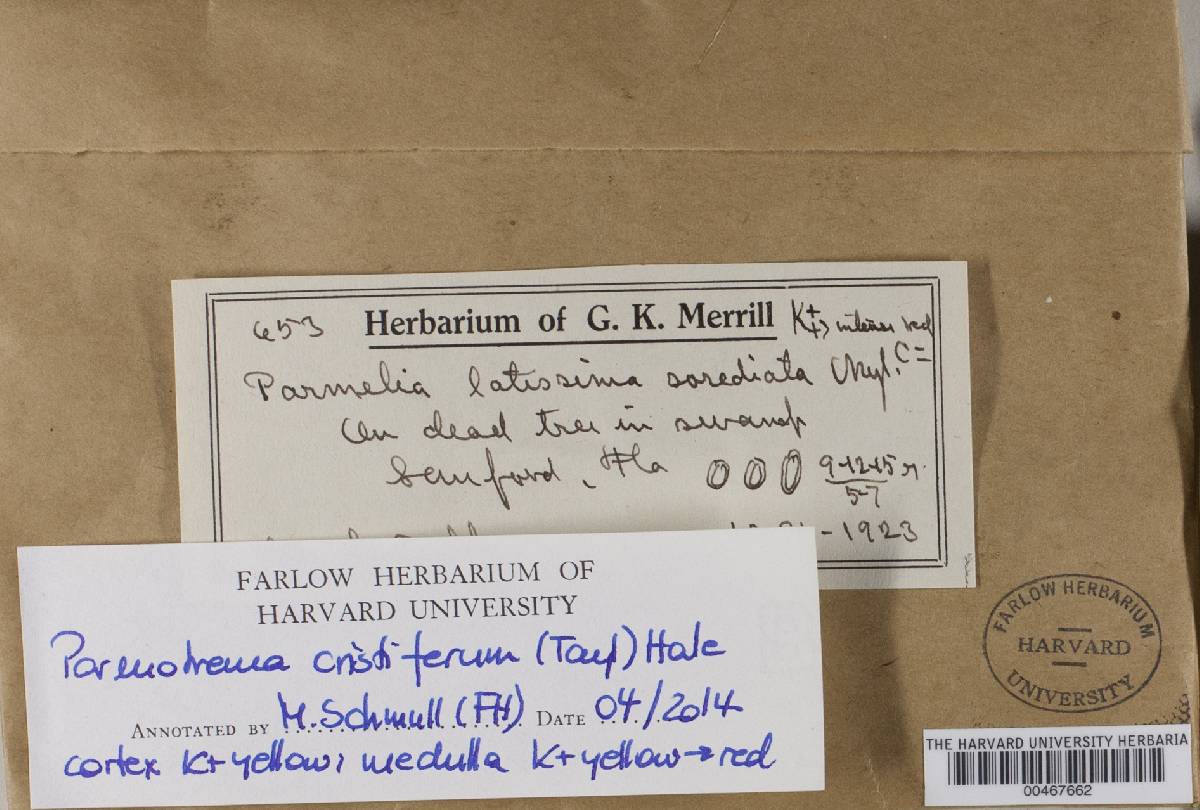 653 Herbarium of G. K. Merrill K++> intense red
Parmelia latissima sorediata Nyl. C=
On dead tree in swamp
Sanford, Fla 000 9-12-15
5-7
-1923
FARLOW HERBARIUM OF
HARVARD UNIVERSITY
Parmotrema cristiferum (Tayl) Hale
ANNOTATED BY M. Schmull (FH) DATE 04/2014
cortex K+ yellow, medulla K+ yellow → red
FARLOW HERBARIUM
HARVARD
UNIVERSITY
THE HARVARD UNIVERSITY HERBARIA
00467662